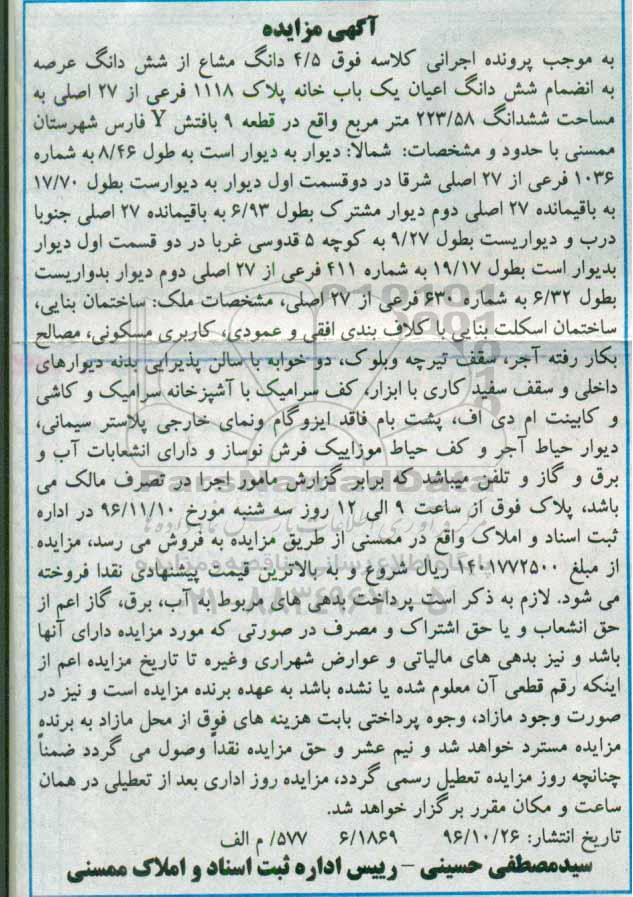 آگهی مزایده
به موجب پرونده اجرائی کلاسه فوق ۴/۵ دانگ مشاع از شش دانگ عرصه
به انضمام شش دانگ اعیان یک باب خانه پلاک ۱۱۱۸ فرعی از ۲۷ اصلی به
مساحت ششدانگ ۲۲۳/۵۸ متر مربع واقع در قطعه ۹ بافتش Y فارس شهرستان
ممسنی با حدود و مشخصات: شمالا: دیوار به دیوار است به طول ۸/۴۶ به شماره
۱۰۳۶ فرعی از ۲۷ اصلی شرقا در دوقسمت اول دیوار به دیوارست بطول ۱۷/۷۰
به باقیمانده ۲۷ اصلی دوم دیوار مشترک بطول ۶/۹۳ به باقیمانده ۲۷ اصلی جنوبا
درب و دیواریست بطول ۹/۲۷ به کوچه ۵ قدوسی غربا در دو قسمت اول دیوار
بدیوار است بطول ۱۹/۱۷ به شماره ۴۱۱ فرعی از ۲۷ اصلی دوم دیوار بدواریست
بطول ۶/۳۲ به شماره ۶۳۰ فرعی از ۲۷ اصلی، مشخصات ملک: ساختمان بنایی،
ساختمان اسکلت بنایی با کلاف بندی افقی و عمودی، کاربری مسکونی، مصالح
بکار رفته آجر، سقف تیرچه وبلوک، دو خوابه با سالن پذیرایی بدنه دیوارهای
داخلی و سقف سفید کاری با ابزار، کف سرامیک با آشپزخانه سرامیک و کاشی
و کابینت ام دی اف، پشت بام فاقد ایزوگام ونمای خارجی پلاستر سیمانی،
دیوار حیاط آجر و کف حیاط موزاییک فرش نوساز و دارای انشعابات آب و
برق و گاز و تلفن میباشد که برابر گزارش مامور اجرا در تصرف مالک می
باشد، پلاک فوق از ساعت ۹ الی ۱۲ روز سه شنبه مورخ ۹۶/۱۱/۱۰ در اداره
ثبت اسناد و املاک واقع در ممسنی از طریق مزایده به فروش می رسد، مزایده
از مبلغ ۱۴۰۱۷۷۲۵۰۰ ریال شروع و به بالاترین قیمت پیشنهادی نقدا فروخته
می شود. لازم به ذکر است پرداخت بدهی های مربوط به آب، برق، گاز اعم از
حق انشعاب و یا حق اشتراک و مصرف در صورتی که مورد مزایده دارای آنها
باشد و نیز بدهی های مالیاتی و عوارض شهراری وغیره تا تاریخ مزایده اعم از
اینکه رقم قطعی آن معلوم شده یا نشده باشد به عهده برنده مزایده است و نیز در
صورت وجود مازاد، وجوه پرداختی بابت هزینه های فوق از محل مازاد به برنده
مزایده مسترد خواهد شد و نیم عشر و حق مزایده نقداً وصول می گردد ضمناً
چنانچه روز مزایده تعطیل رسمی گردد، مزایده روز اداری بعد از تعطیلی در همان
ساعت و مکان مقرر برگزار خواهد شد.
تاریخ انتشار: ۹۶/۱۰/۲۶ ۶/۱۸۶۹ ۵۷۷/ م الف
سیدمصطفی حسینی - رییس اداره ثبت اسناد و املاک ممسنی
ParsNamadData